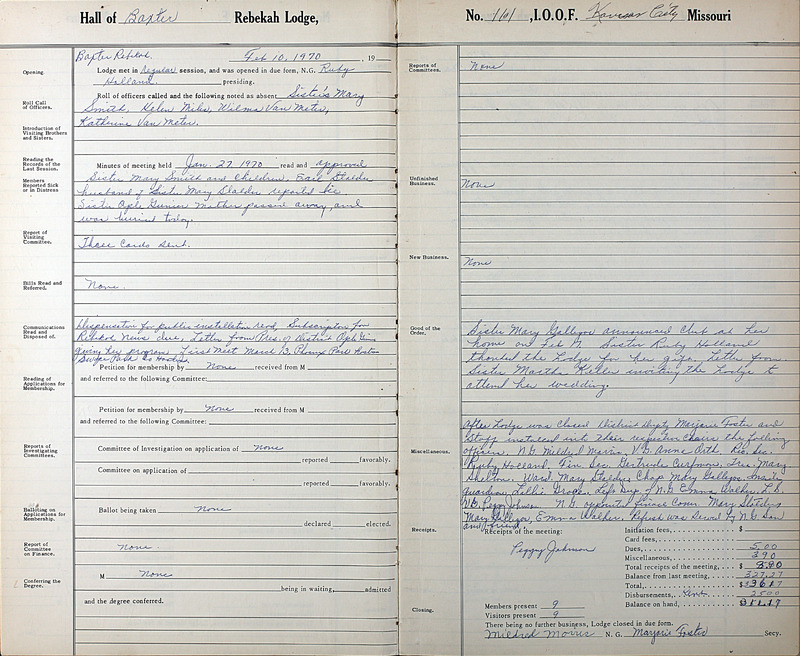 Hall of Baxter Rebekah Lodge,
Baxter Rebekah Feb 10, 1970, 19
Opening.
Lodge met in Regular session, and was opened in due form, N.G. Ruby
Holland presiding.
Roll Call
of Officers.
Roll of officers called and the following noted as absent Sister's Mary
Smith, Helen Miles, Wilma Van Meter,
Katherine Van Meter.
Introduction of
Visiting Brothers
and Sisters.
Reading the
Records of the
Last Session.
Minutes of meeting held Jan. 27 1970 read and approved
Members
Reported Sick
or in Distress
Sister Mary Smith and Children. Earl
husband of Sister Mary reported
Sister Opal Mother passed away, and
was buried today.
Report of
Visiting
Committee.
Three Cards sent.
Bills Read and
Referred.
None.
Communications
Read and
Disposed of.
Dispensation for public installation read, Subscription for
Rebekah News due, Letter from Pres. of District Opal
giving her program. First Meet March 13.
Reading of
Applications for
Membership.
Petition for membership by None received from M
and referred to the following Committee:
Petition for membership by None received from M
and referred to the following Committee:
Reports of
Investigating
Committees.
Committee of Investigation on application of None
reported favorably.
Committee on application of
reported favorably.
Balloting on
Applications for
Membership.
Ballot being taken None
declared elected.
Report of
Committee
on Finance.
None.
Conferring the
Degree.
M None
being in waiting, admitted
and the degree conferred.
No. 161, I.O.O.F. Kansas City Missouri
Reports of
Committees.
None
Unfinished
Business.
None
New Business.
None
Good of the
Order.
Sister Mary Gallegos announced Club at her
home on Feb 17. Sister Ruby Holland
thanked the Lodge for her gift. Letter from
Sister Martha Keller inviting the Lodge to
attend her wedding.
Miscellaneous.
After Lodge was closed District Deputy Marjorie Foster and
Staff installed in their respective chairs the following
officers. N.G. Mildred Morris, V.G. Anna Orth. Rec. Sec.
Ruby Holland. Fin. Sec. Gertrude Tres. Mary
Shelton. Ward. Mary Chap Mary Gallegos, Inside
guardian, Left Sup. of N.G. Emma Walker,
V.G. Peggy Johnson N.G. appointed finance Comm. Mary
Mary Gallegos, Emma Walker. Refresh was Served by N.G. Son
and friend.
Receipts.
Receipts of the meeting:
Peggy Johnson
Initiation fees, $
Card fees,
Dues, 5.00
Miscellaneous, 3.90
Total receipts of the meeting, $ 8.90
Balance from last meeting, 327.27
Total, $ 336.17
Disbursements, Rent 25.00
Balance on hand, $ 311.17
Closing.
Members present 9
Visitors present 9
There being no further business, Lodge closed in due form.
Mildred Morris N.G. Marjorie Foster Secy.